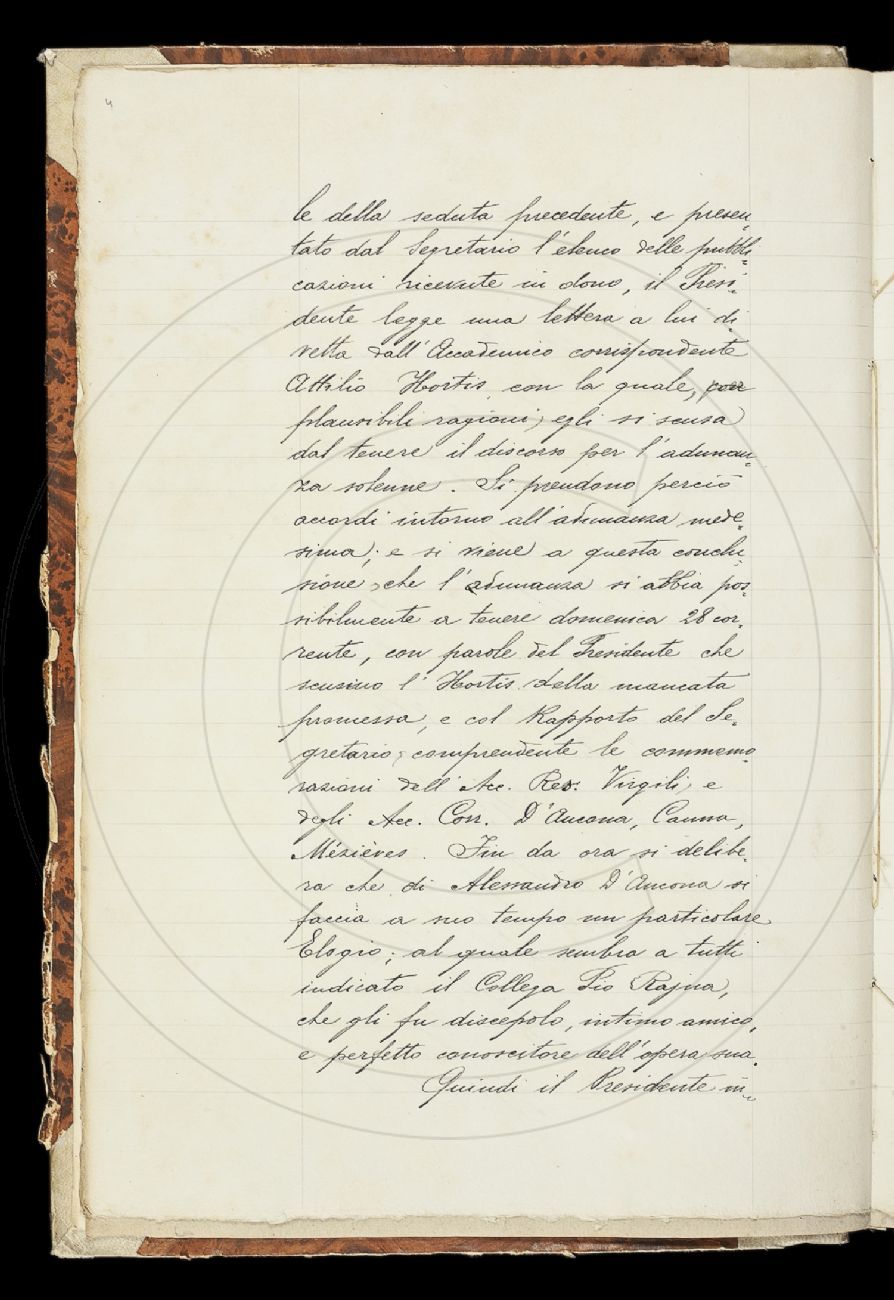 4
le della seduta precedente, e presen-
tato dal Segretario l'elenco delle pubbli-
cazioni ricevute in dono, il Presi-
dente legge una lettera a lui di-
retta dall'Accademico corrispondente
Attilio Hortis, con la quale, per
plausibili ragioni, egli si scusa
dal tenere il discorso per l'adunan-
za solenne. Si prendono perciò
accordi intorno all'adunanza mede-
sima; e si viene a questa conclu-
sione, che l'adunanza si abbia pos-
sibilmente a tenere domenica 28 cor-
rente, con parole del Presidente che
scusino l'Hortis della mancata
promessa, e col Rapporto del Se-
gretario, comprendente le commemo-
razioni dell'Acc. Res. Virgili, e
degli Acc. Corr. D'Ancona, Canna,
Mézières. Fin da ora si delibe-
ra che di Alessandro D'Ancona si
faccia a suo tempo un particolare
Elogio; al quale sembra a tutti
indicato il Collega Pio Rajna,
che gli fu discepolo, intimo amico,
e perfetto conoscitore dell'opera sua.
Quindi il Presidente in-